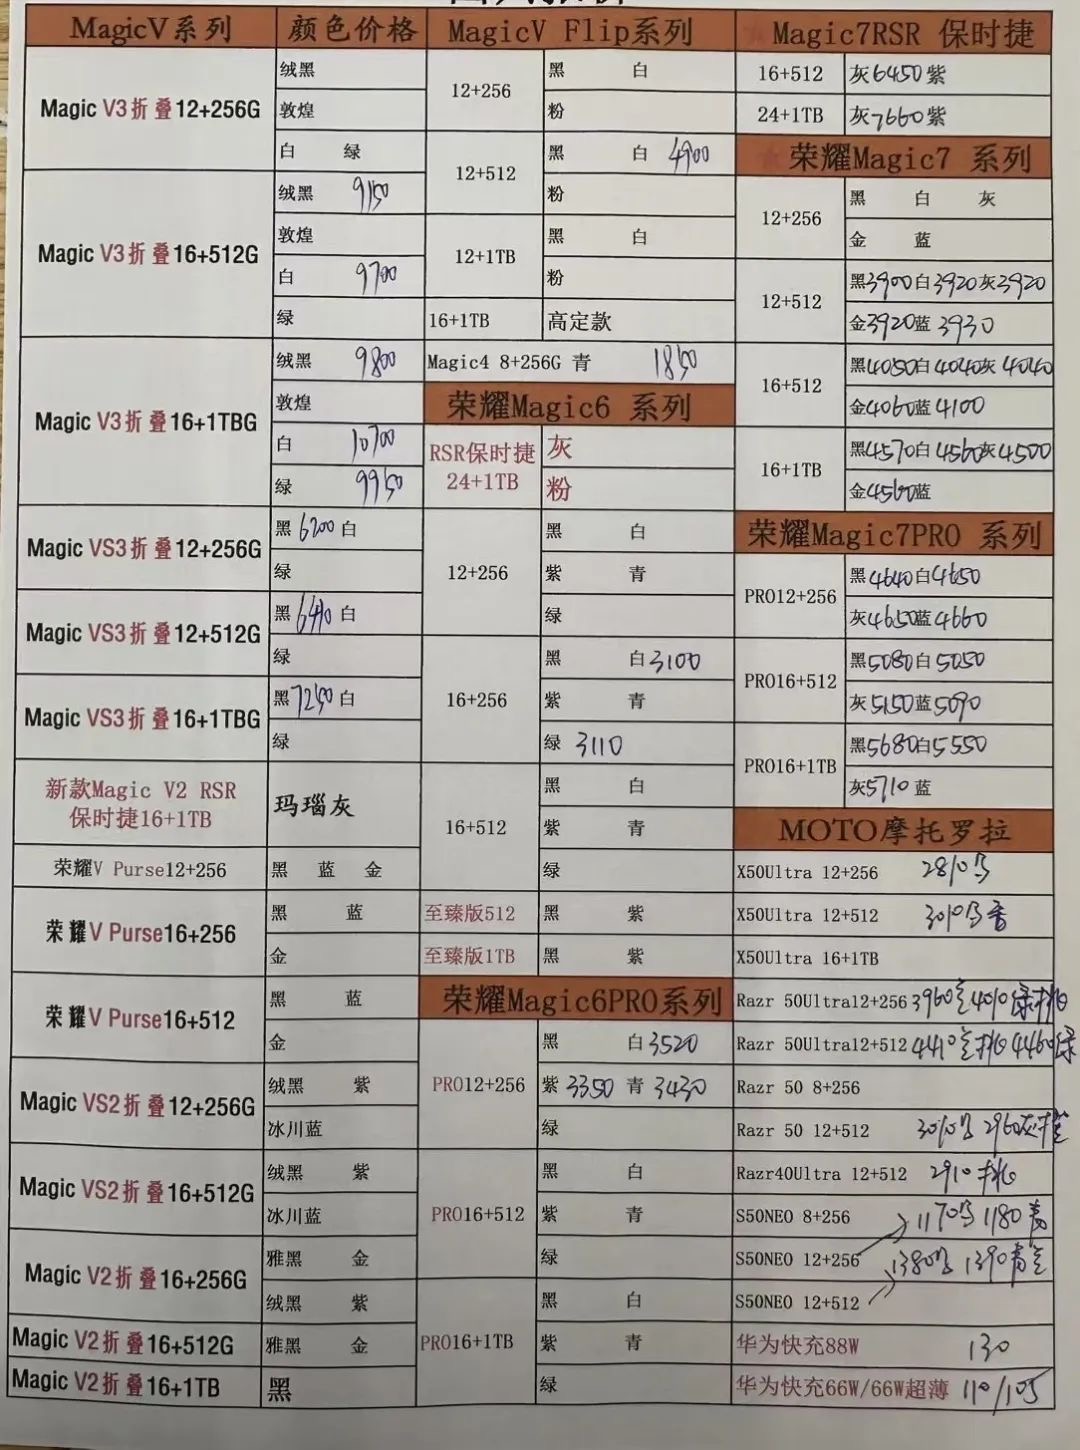 MagicV系列 颜色价格
Magic V3折叠12+256G
绒黑
敦煌
白 绿
Magic V3折叠16+512G
绒黑 9150
敦煌
白 9700
绿
Magic V3折叠16+1TBG
绒黑 9800
敦煌
白 10700
绿 9950
Magic VS3折叠12+256G
黑6200白
绿
Magic VS3折叠12+512G
黑 白
绿
Magic VS3折叠16+1TBG
黑7250白
绿
新款Magic V2 RSR
保时捷16+1TB
玛瑙灰
荣耀V Purse12+256 黑 蓝 金
荣耀V Purse16+256
黑 蓝
金
荣耀V Purse16+512
黑 蓝
金
Magic VS2折叠12+256G
绒黑 紫
冰川蓝
Magic VS2折叠16+512G
绒黑 紫
冰川蓝
Magic V2折叠16+256G
雅黑 金
绒黑 紫
Magic V2折叠16+512G 雅黑 金
Magic V2折叠16+1TB 黑
MagicV Flip系列
12+256
黑 白
粉
12+512
黑 白 4900
粉
12+1TB
黑 白
粉
16+1TB 高定款
Magic4 8+256G 青 1850
荣耀Magic6 系列
RSR保时捷
24+1TB
灰
粉
12+256
黑 白
紫 青
绿
16+256
黑 白3100
紫 青
绿 3110
16+512
黑 白
紫 青
绿
至臻版512 黑 紫
至臻版1TB 黑 紫
荣耀Magic6PRO系列
PRO12+256
黑 白3520
紫 3350 青 3430
绿
PRO16+512
黑 白
紫 青
绿
PRO16+1TB
黑 白
紫 青
绿
Magic7RSR 保时捷
16+512 灰6450紫
24+1TB 灰7660紫
荣耀Magic7 系列
12+256
黑 白 灰
金 蓝
12+512
黑3900白3920灰3920
金3920蓝 3930
16+512
黑4050白4040灰4040
金4060蓝4100
16+1TB
黑4570白4560灰4500
金4560蓝
荣耀Magic7PRO 系列
PRO12+256
黑4640白4650
灰4650蓝4660
PRO16+512
黑5080白5050
灰5150蓝5090
PRO16+1TB
黑5680白5550
灰5710蓝
MOTO摩托罗拉
X50Ultra 12+256 2810
X50Ultra 12+512 3010
X50Ultra 16+1TB
Razr 50Ultra12+256 3960 4010绿桃
Razr 50Ultra12+512 4410 桃 4460绿
Razr 50 8+256
Razr 50 12+512 3010 2960灰
Razr40Ultra 12+512 2910 桃
S50NEO 8+256 1170 1180
S50NEO 12+256 1380 1390
S50NEO 12+512
华为快充88W 130
华为快充66W/66W超薄 110/105